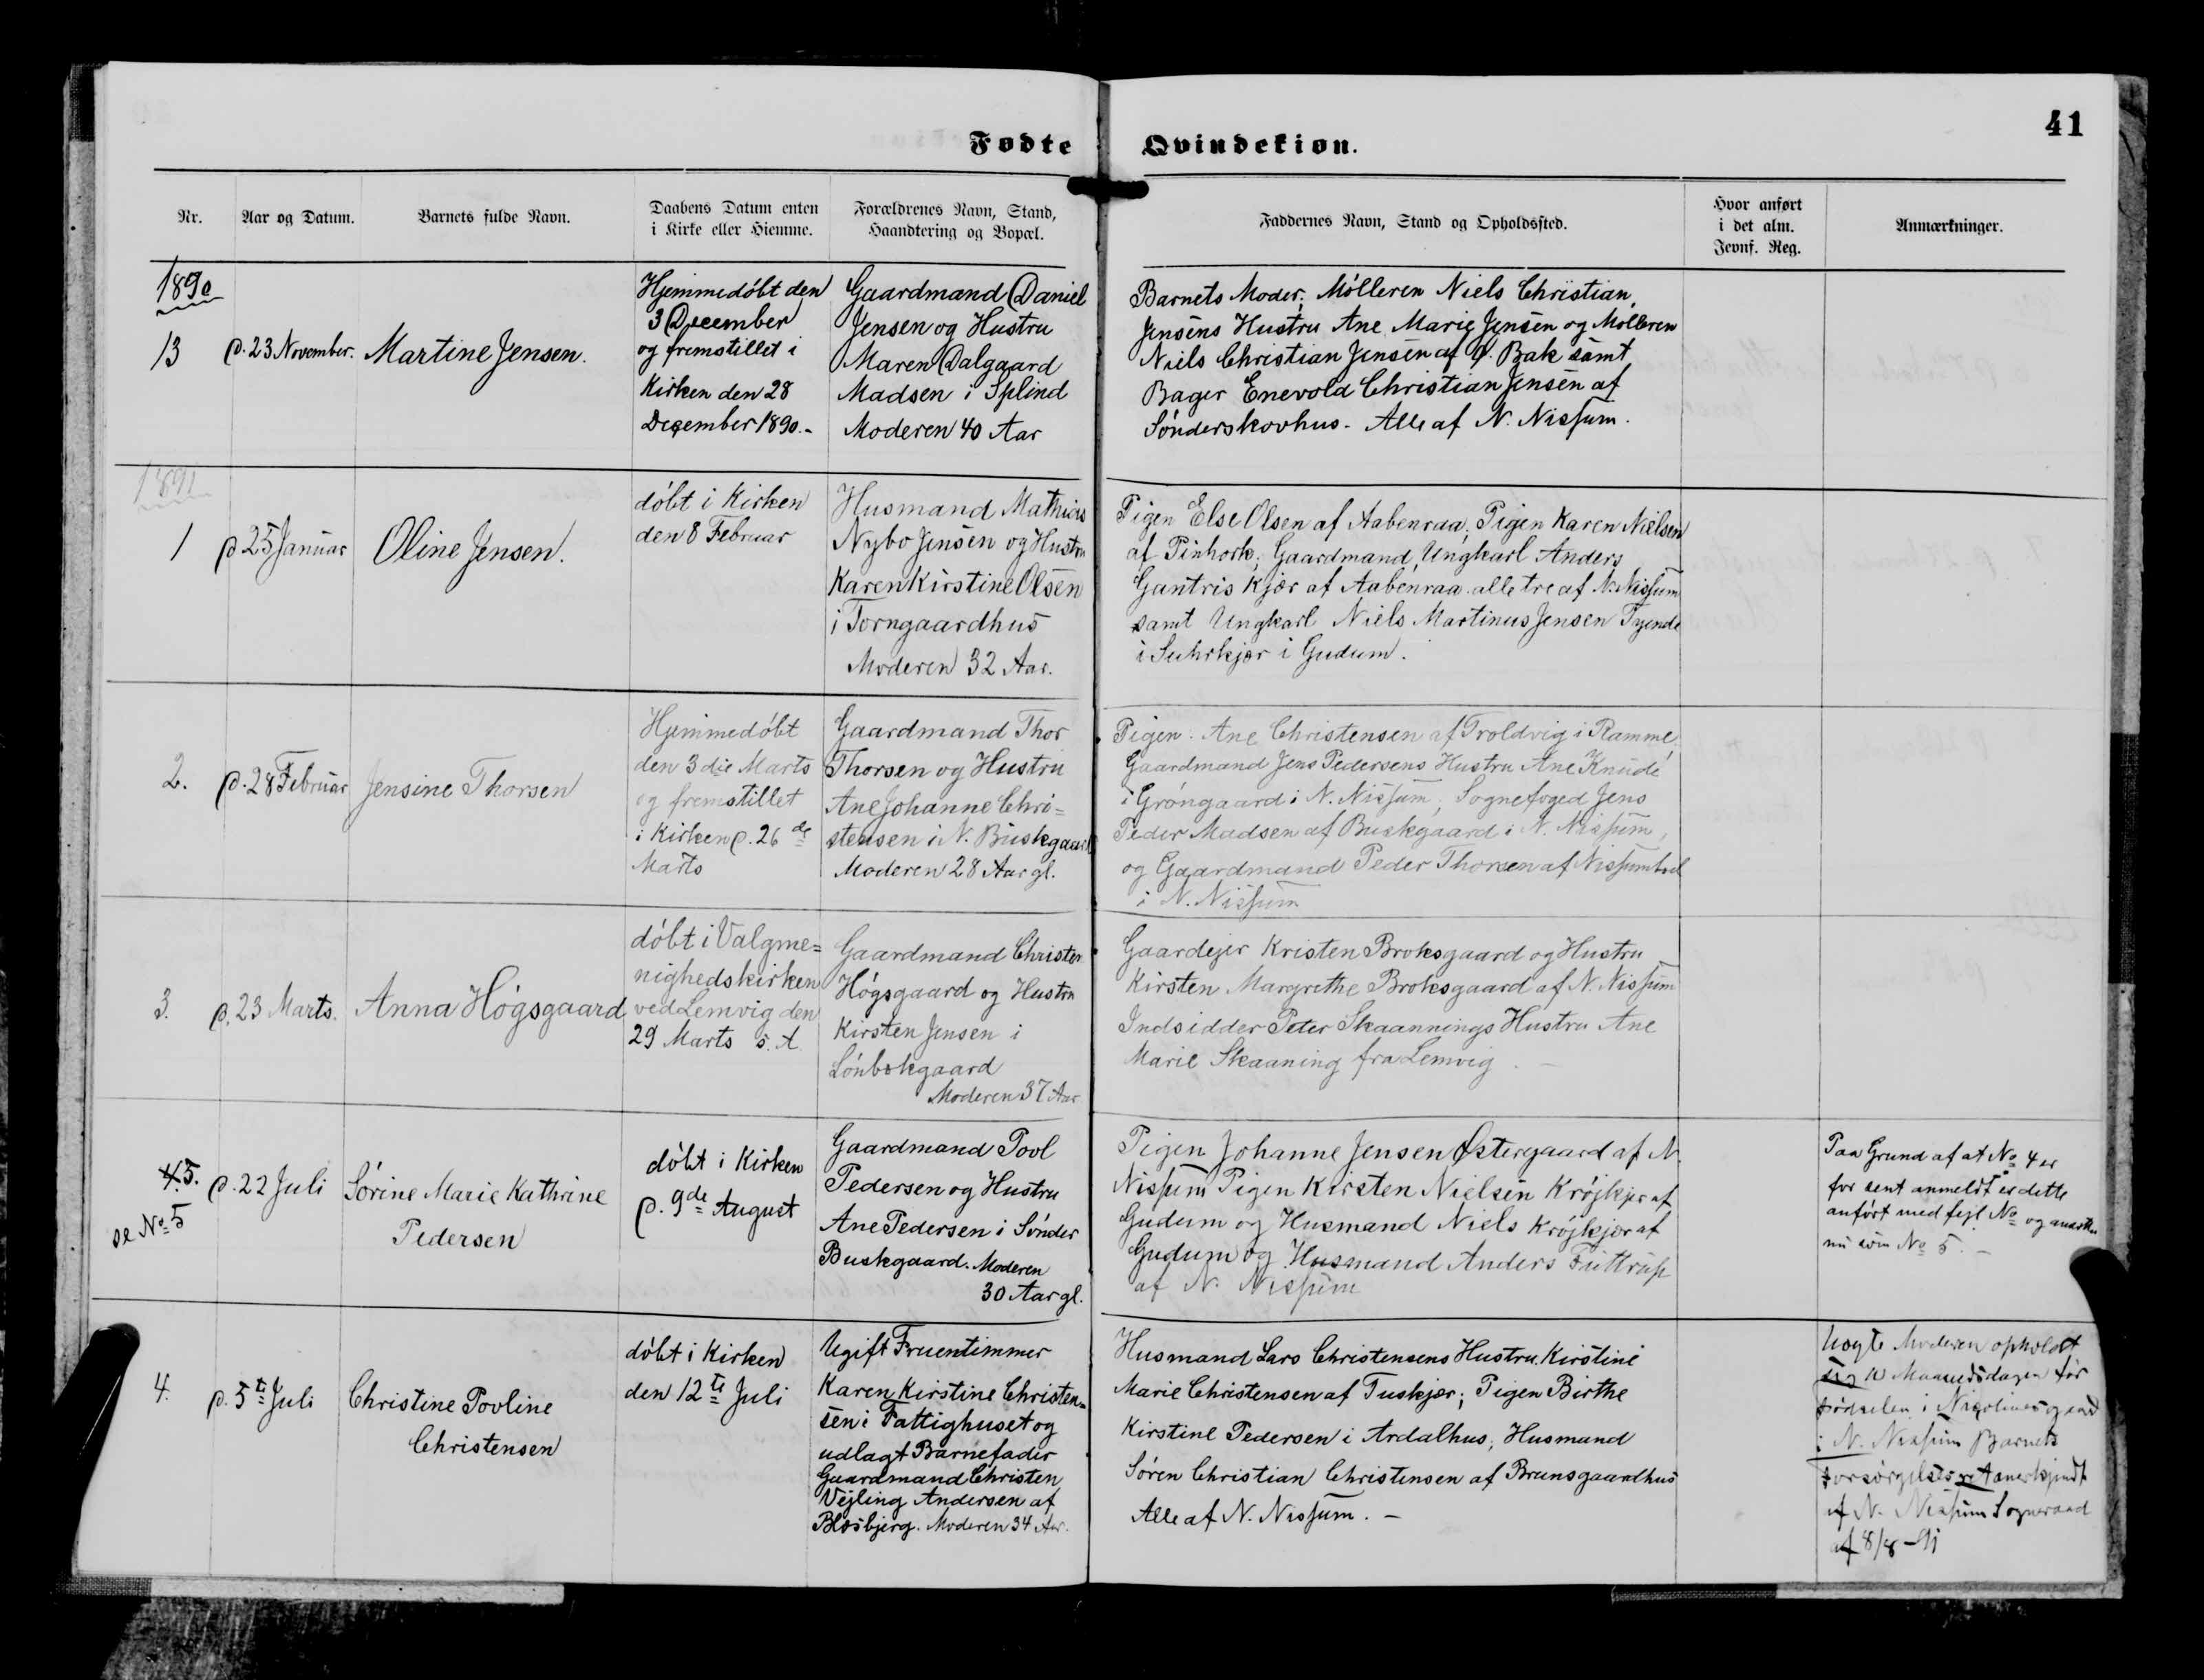 41
Fødte Qvindekiøn.
Nr.
Aar og Datum.
Barnets fulde Navn.
Daabens Datum enten
i Kirke eller Hiemme.
Forældrenes Navn, Stand,
Haandtering og Bopæl.
Faddernes Navn, Stand og Opholdssted.
Hvor anført
i det alm.
Jevnf. Reg.
Anmærkninger.
1890
13
d. 23 November.
Martine Jensen.
Hjemmedöbt den
3 December
og fremstillet i
Kirken den 28
December 1890.-
Gaardmand Daniel
Jensen og Hustru
Maren Dalgaard
Madsen i Splind
Moderen 40 Aar
Barnets Moder; Mölleren Niels Christian
Jensens Hustru Ane Marie Jensen og Mölleren
Niels Christian Jensen af Bak samt
Bager Enevold Christian Jensen af
Sönderskovhus. Alle af N. Nissum.
1891
1
d 25 Januar
Oline Jensen.
döbt i Kirken
den 8 Februar
Husmand Mathias
Nybo Jensen og Hustru
Karen Kirstine Olsen
i Torngaardhus
Moderen 32 Aar.
Pigen Else Olsen af Aabenraa; Pigen Karen Nielsen
af Pinhork; Gaardmand, Ungkarl Anders
Gantris Kjær af Aabenraa alle tre af N. Nissum
samt Ungkarl Niels Martinus Jensen Tyende
i Suhrkjær i Gudum.
2.
d. 28 Februar
Jensine Thorsen
Hjemmedöbt
den 3die Marts
og fremstillet
i Kirken d. 26de
Marts
Gaardmand Thor
Thorsen og Hustru
Ane Johanne Chri=
stensen i N. Buskgaard
Moderen 28 Aar gl.
Pigen Ane Christensen af Troldvig i Ramme
Gaardmand Jens Pedersens Hustru Ane Knude
i Gröngaard i N. Nissum; Sognefoged Jens
Peder Madsen af Buskgaard i N. Nissum,
og Gaardmand Peder Thorsen af
i N. Nissum
3.
d. 23 Marts.
Anna Högsgaard
döbt i Valgme=
nighedskirken
ved Lemvig den
29 Marts s. A.
Gaardmand Christen
Högsgaard og Hustru
Kirsten Jensen i
Lönbekgaard
Moderen 37 Aar
Gaardejer Kristen Broksgaard og Hustru
Kirsten Margrethe Broksgaard af N. Nissum
Indsidder Peter Skaannings Hustru Ane
Marie Skaaning fra Lemvig. -
4. 5.
se No 5
d. 22 Juli
Sörine Marie Kathrine
Pedersen
döbt i Kirken
d. 9de August
Gaardmand Povl
Pedersen og Hustru
Ane Pedersen i Sönder
Buskgaard. Moderen
30 Aar gl.
Pigen Johanne Jensen Østergaard af N.
Nissum Pigen Kirsten Nielsen Kröjkjær af
Gudum og Husmand Niels Kröjkjær af
Gudum og Husmand Anders Futtrup
af N. Nissum
Paa Grund af at No 4 er
for sent anmeldt er dette
anfört med fejl No og
nu som No 5. -
4.
d. 5te Juli
Christine Povline
Christensen
döbt i Kirken
den 12te Juli
Ugift Fruentimmer
Karen Kirstine Christen=
sen i Fattighuset og
udlagt Barnefader
Gaardmand Christen
Vejling Andersen af
Blæsbjerg. Moderen 34 Aar.
Husmand Lars Christensens Hustru Kirstine
Marie Christensen af Tuskjær; Pigen Birthe
Kirstine Pedersen i Ardalhus; Husmand
Sören Christian Christensen af Brunsgaardhus
Alle af N. Nissum. -
Moderen opholdt
sig 10 Maanedsdagen før
Födselen i
i N. Nissum Barnets
Forsörgelsesret anerkjendt
af N. Nissum Sogneraad
af 8/8-91